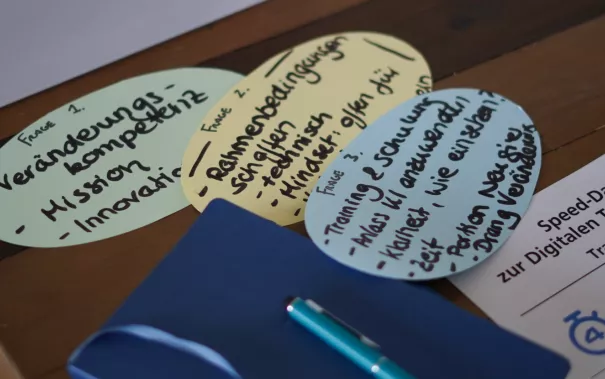 FRAGE 1.
Veränderungs-
kompetenz
- Mission
- Innovatio
FRAGE 2.
- Rahmenbedingungen
schaffen
- technisch
- Mindset: offen für
FRAGE 3.
- Training & Schulung
- Anlass KI anzuwenden
- Klarheit, wie einsetzen?
- Zeit
- Portion Neugier
- Drang Verändern
Speed-Da
zur Digitalen T
Tr
4